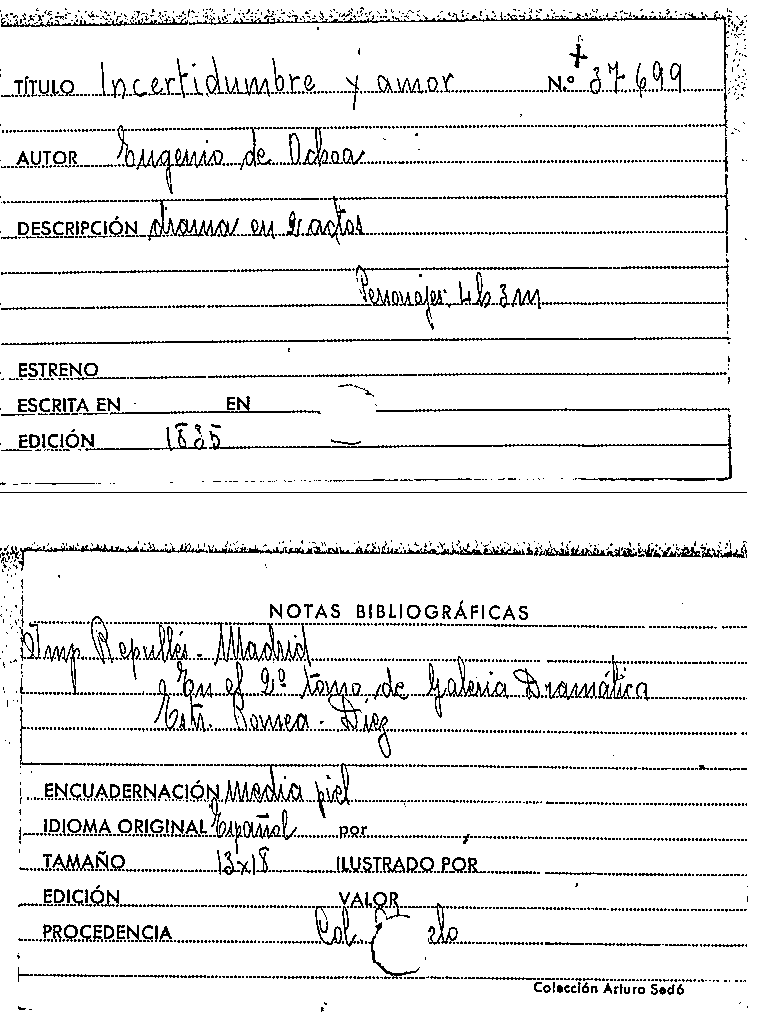 TÍTULO Incertidumbre y amor N.º 37-699
AUTOR Eugenio de Ochoa
DESCRIPCIÓN drama en 2 actos
Personajes: 4h 3m
ESTRENO
ESCRITA EN EN
EDICIÓN 1835
NOTAS BIBLIOGRÁFICAS
Imp. Repullés - Madrid
En el 2º tomo de Galeria Dramática
Estr. Romea - Díez
ENCUADERNACIÓN Media piel
IDIOMA ORIGINAL Español por
TAMAÑO 13x18 ILUSTRADO POR
EDICIÓN VALOR
PROCEDENCIA Col.
Colección Arturo Sedó